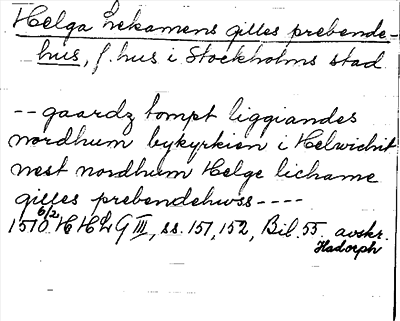 Helga Lekamens gilles prebende-
hus, f. hus i Stockholms stad
-- gaardz tompt liggiandes
nordhum bykyrkien i Helwichit
nest nordhum Helge lichame
gilles prebendehwss ----
1510 6/2 HHL G III, ss. 151, 152, Bil. 55. avskr.
Hadorph